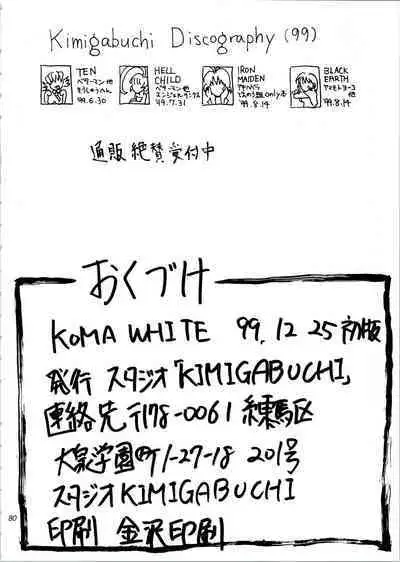 Kimigabuchi Discography (99)
TEN
ベターマン他
そうしゅうへん
'99.6.30
HELL
CHILD
ベターマン他
'99.7.31
IRON
MAIDEN
only本
'99.8.14
BLACK
EARTH
ヤマモトヨーコ
他
'99.8.14
通販 絶賛受付中
おくづけ
KOMA WHITE 99.12.25 初版
発行 スタジオ「KIMIGABUCHI」
連絡先 〒178-0061 練馬区
大泉学園町1-27-18 201号
スタジオKIMIGABUCHI
印刷 金沢印刷
80